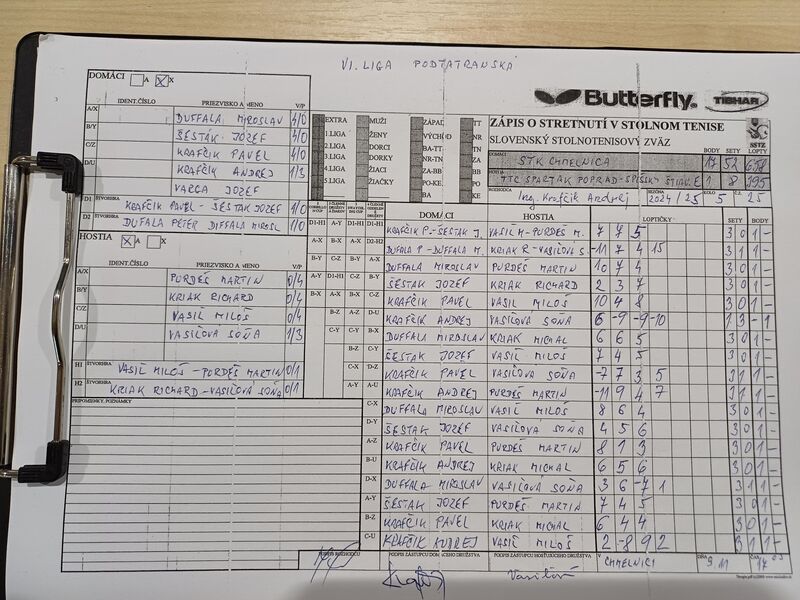 VI. LIGA PODTATRANSKÁ
DOMÁCI A X
Butterfly. TIBHAR
IDENT.ČÍSLO PRIEZVISKO A MENO V/P
A/X DUFFALA MIROSLAV 4/0
B/Y ŠESTÁK JOZEF 4/0
C/Z KRAFČÍK PAVEL 4/0
D/U KRAFČÍK ANDREJ 1/3
VARGA JOZEF
D1 KRAFČÍK PAVEL - ŠESTÁK JOZEF 1/0
D2 DUFALA PETER DUFFALA MIROSL 1/0
EXTRA MUŽI ZÁPAD TT
1.LIGA ŽENY VÝCHOD NR
2.LIGA DORCI BA-TT TN
3.LIGA DORKY TN-NR ZA
4.LIGA ŽIACI ZA-BB BB
5.LIGA ŽIAČKY PO-KE PO
BA KE
ZÁPIS O STRETNUTÍ V STOLNOM TENISE
SLOVENSKÝ STOLNOTENISOVÝ ZVÄZ
SSTZ
BODY SETY LOPTY
DOMÁCI STK CHMELNICA 17 52 678
HOSTIA TTC SPARTAK POPRAD-SPIŠSKÝ ŠTIAV. E 1 8 395
ROZHODCA Ing. Krafčík Andrej SEZÓNA 2024/25 KOLO 5 Č.Z. 25
HOSTIA A X
IDENT.ČÍSLO PRIEZVISKO A MENO V/P
A/X PURDEŠ MARTIN 0/4
B/Y KRIAK RICHARD 0/4
C/Z VASIĽ MILOŠ 0/4
D/U VASIĽOVÁ SOŇA 1/3
H1 ŠTVORHRA VASIĽ MILOŠ - PURDEŠ MARTIN 0/1
H2 ŠTVORHRA KRIAK RICHARD - VASIĽOVÁ SOŇA 0/1
PRIPOMIENKY, POZNÁMKY
DOMÁCI HOSTIA LOPTIČKY SETY BODY
KRAFČÍK P. - ŠESTÁK J. VASIĽ M - PURDEŠ M. 7 7 5 3 0 1 -
DUFALA P - DUFFALA M. KRIAK R - VASIĽOVÁ S -11 7 4 15 3 1 1 -
DUFFALA MIROSLAV PURDEŠ MARTIN 10 7 4 3 0 1 -
ŠESTÁK JOZEF KRIAK RICHARD 2 3 7 3 0 1 -
KRAFČÍK PAVEL VASIĽ MILOŠ 10 4 8 3 0 1 -
KRAFČÍK ANDREJ VASIĽOVÁ SOŇA 6 -9 -9 -10 1 3 - 1
DUFFALA MIROSLAV KRIAK MICHAL 6 6 5 3 0 1 -
ŠESTÁK JOZEF VASIĽ MILOŠ 7 4 5 3 0 1 -
KRAFČÍK PAVEL VASIĽOVÁ SOŇA -7 7 3 5 3 1 1 -
KRAFČÍK ANDREJ PURDEŠ MARTIN -11 9 4 7 3 1 1 -
DUFFALA MIROSLAV VASIĽ MILOŠ 8 6 4 3 0 1 -
ŠESTÁK JOZEF VASIĽOVÁ SOŇA 4 5 6 3 0 1 -
KRAFČÍK PAVEL PURDEŠ MARTIN 8 1 3 3 0 1 -
KRAFČÍK ANDREJ KRIAK MICHAL 6 5 6 3 0 1 -
DUFFALA MIROSLAV VASIĽOVÁ SOŇA 3 6 -7 1 3 1 1 -
ŠESTÁK JOZEF PURDEŠ MARTIN 7 4 5 3 0 1 -
KRAFČÍK PAVEL KRIAK MICHAL 6 4 4 3 0 1 -
KRAFČÍK ANDREJ VASIĽ MILOŠ 2 -8 9 2 3 1 1 -
PODPIS ROZHODCU PODPIS ZÁSTUPCU DOMÁCEHO DRUŽSTVA PODPIS ZÁSTUPCU HOSŤUJÚCEHO DRUŽSTVA V CHMELNICI DŇA 9.11 ČAS 17
Vasiľová